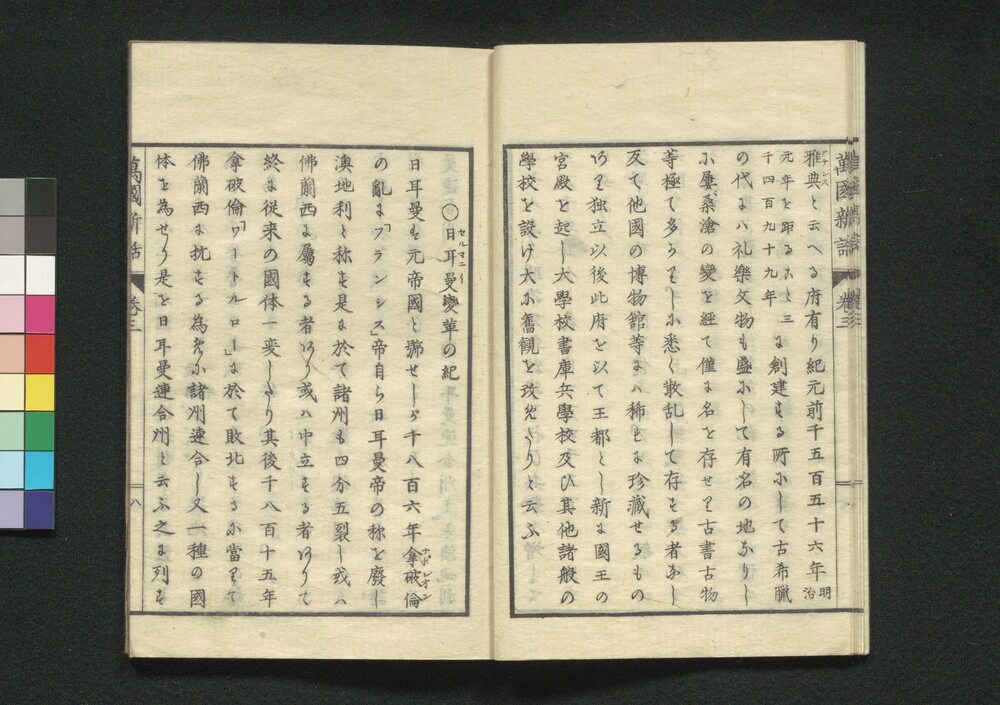 萬國新話 卷三
雅典と云へる府有り紀元前千五百五十六年 明治
元年を距ること三千四百九十九年 に創建する所にして古希臘
の代には礼樂文物も盛にして有名の地なりし
に屡桑滄の變を経て僅に名を存せり古書古物
等極て多かりしに悉く散乱して存する者なし
反て他國の博物館等には稀に珍藏せるもの
あり独立以後此府を以て王都とし新に國王の
宮殿を起し大學校書庫兵學校及び其他諸般の
學校を設け大に舊観を改めたりと云ふ
○日耳曼變革の紀
日耳曼も元帝國と號せしが千八百六年拿破倫
の亂に「フランシス」帝自ら日耳曼帝の称を廢し
澳地利と称す是に於て諸州も四分五裂し或ハ
佛蘭西に屬する者あり或ハ中立する者ありて
終に従来の國体一変したり其後千八百十五年
拿破倫「ワートルロー」に於て敗北するに當りて
佛蘭西に抗する為めに諸州連合し又一種の國
体を為せり是を日耳曼連合州と云ふ之に列す
萬國新話 卷三 八